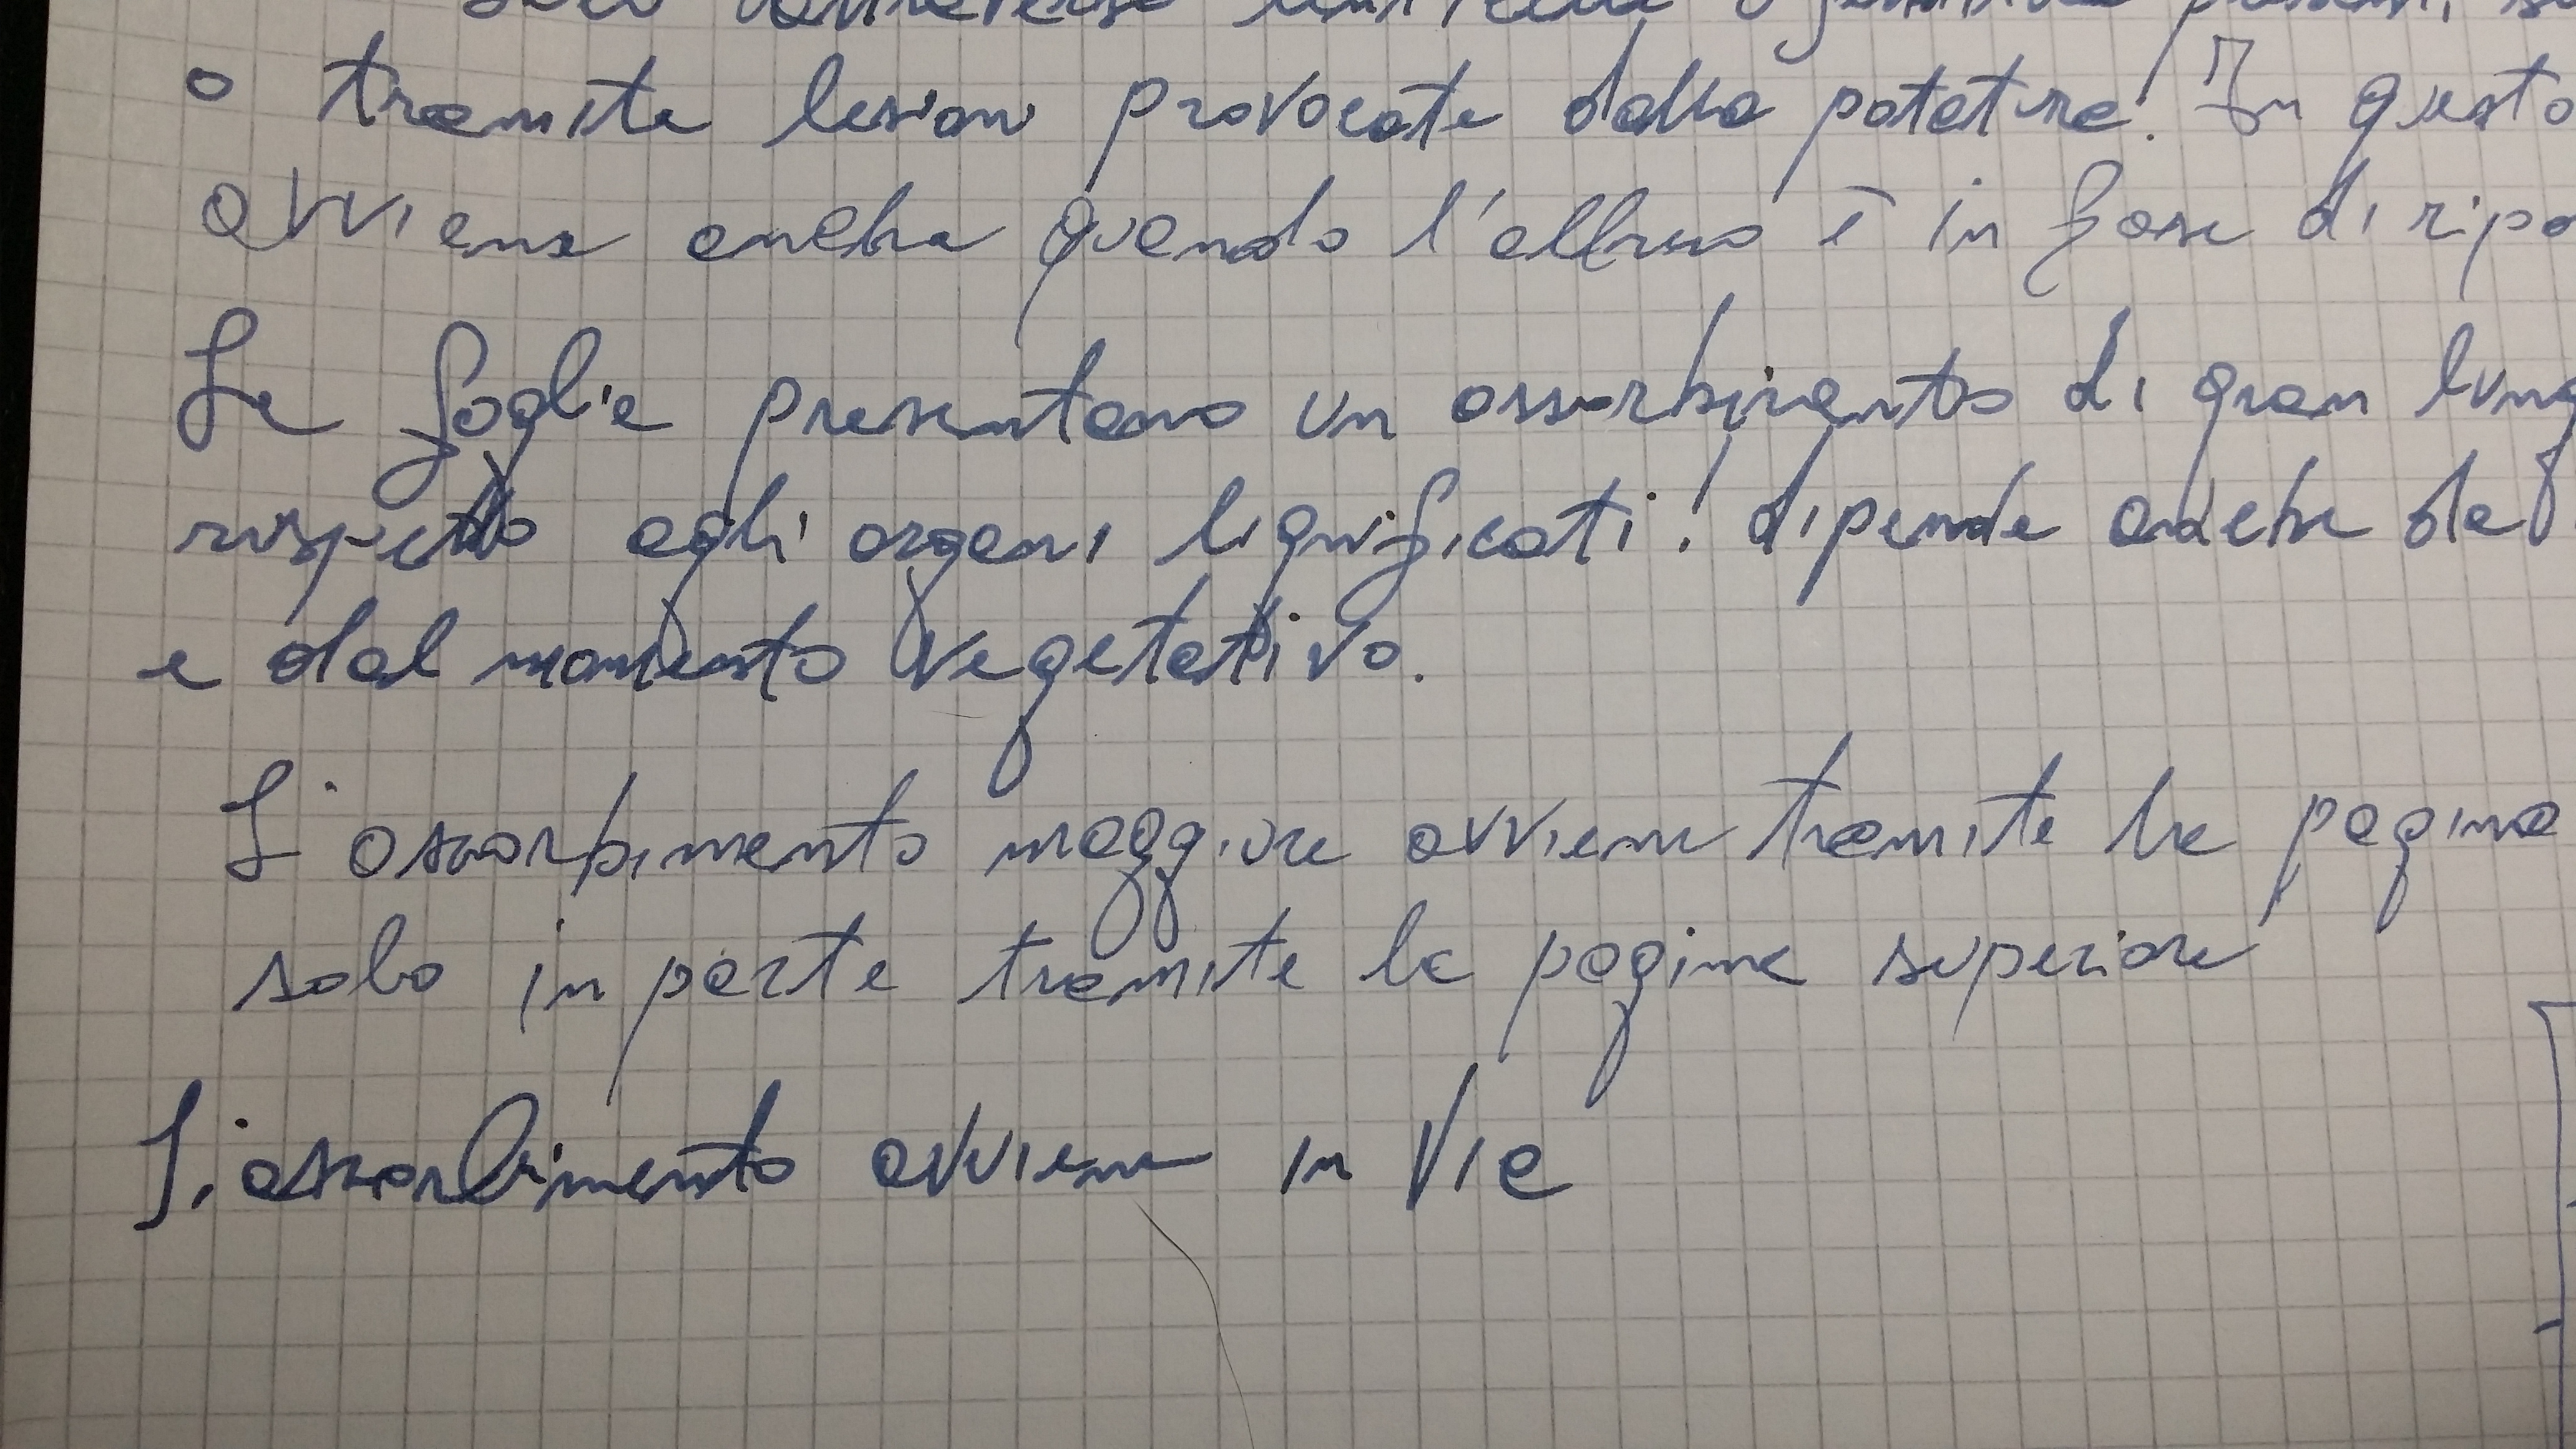 solo attraverso lenticelle o gemme
o tramite lesioni provocate dalla potatura. In questo
avviene anche quando l'albero è in fase di ripo
Le foglie presentano un assorbimento di gran lung
rispetto agli organi lignificati! dipende anche da
e dal momento vegetativo.
L'assorbimento maggiore avviene tramite la pagina
solo in parte tramite la pagina superiore
L'assorbimento avviene in via